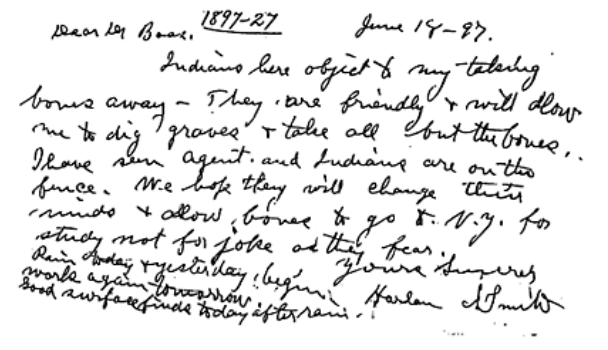 1897-27
Dear Dr Boas. June 18-97.
Indians here object to my taking
bones away – They are friendly & will allow
me to dig graves & take all but the bones.
I have seen agent and Indians are on the
fence. We hope they will change their
minds & allow bones to go to N.Y. for
study not for joke as they fear.
Yours Sincerely
Harlan I Smith
Rain today & yesterday, begin
work again tomorrow.
Good surface finds today after rain.